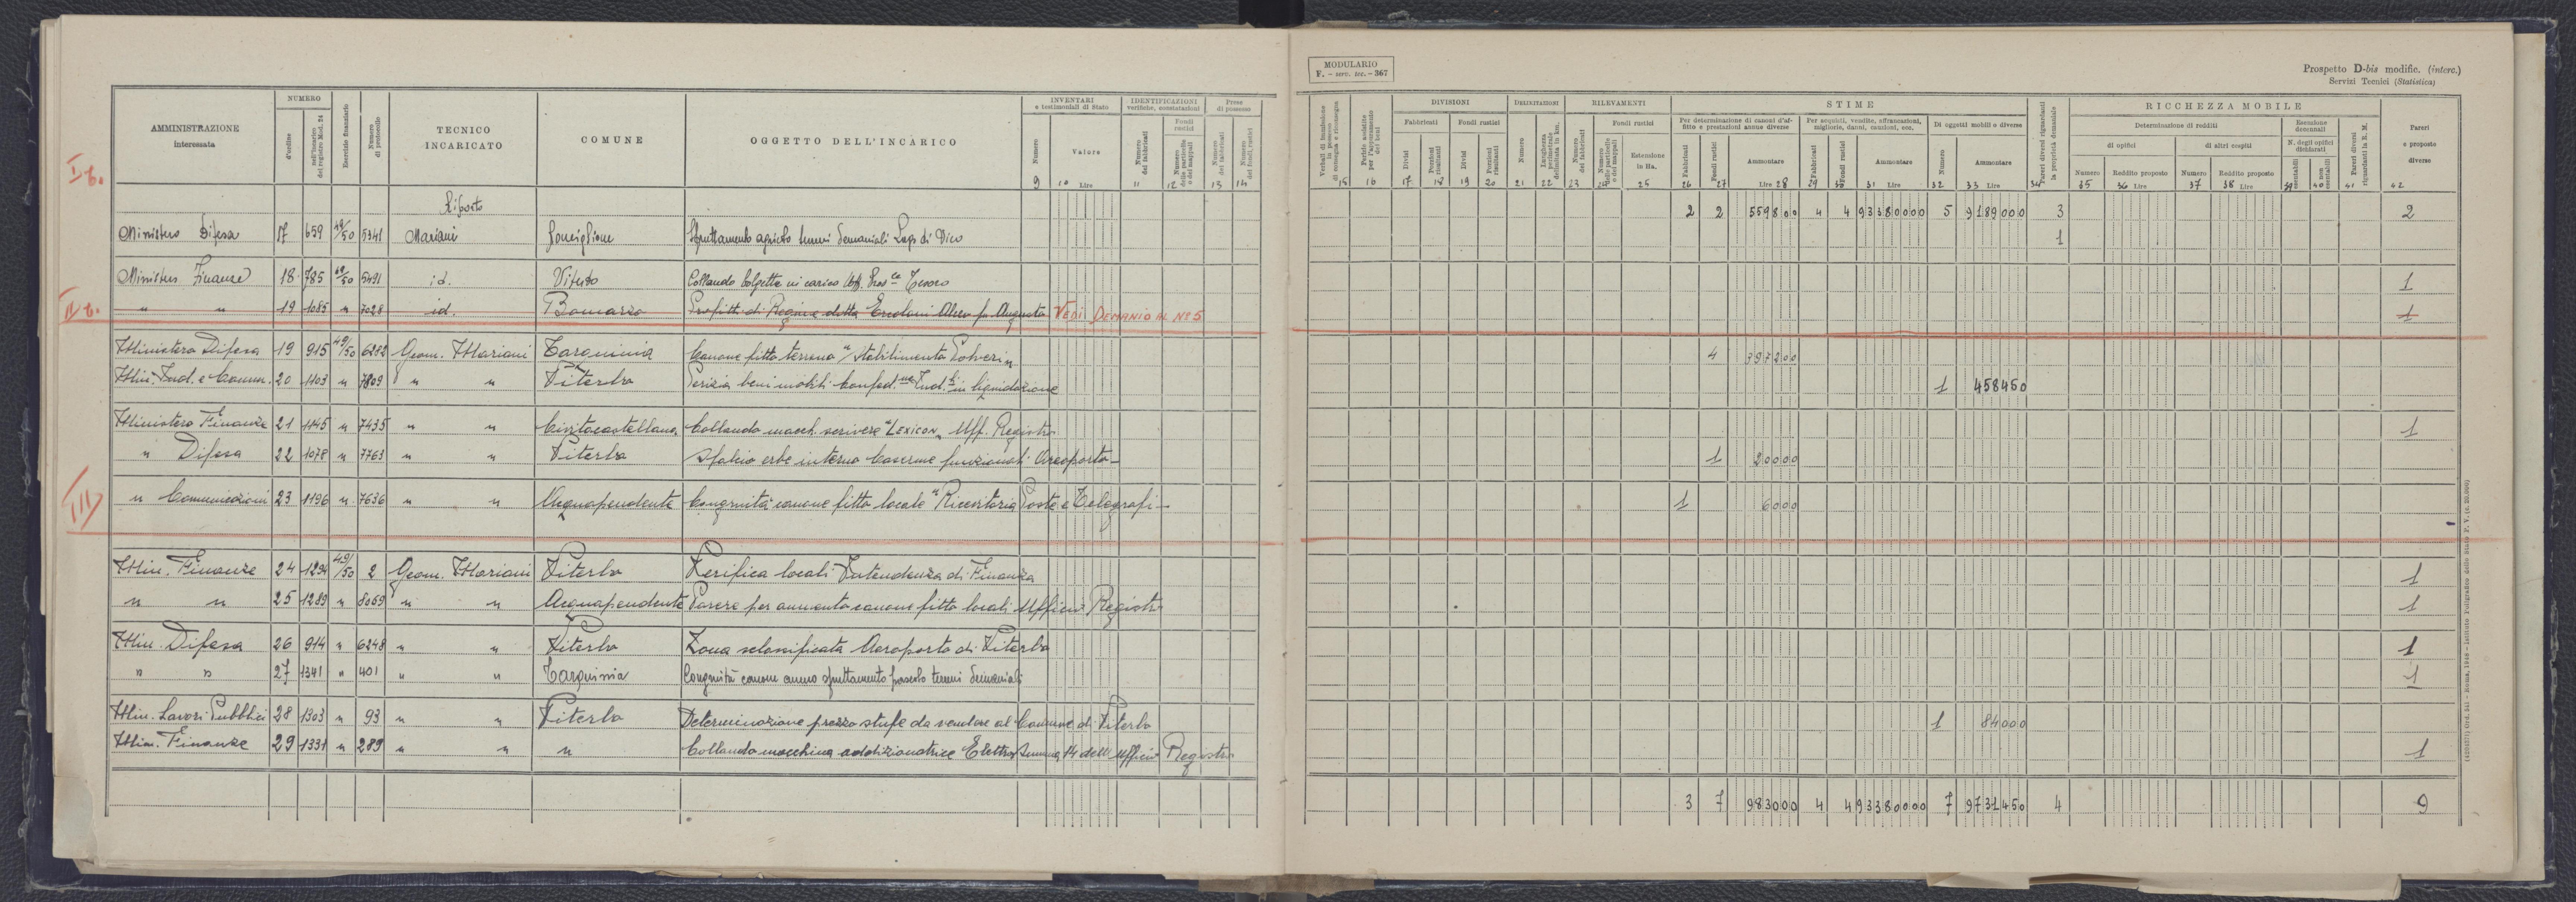 MODULARIO
F. - serv. tec. - 367
Prospetto D-bis modific. (interc.)
Servizi Tecnici (Statistica)
AMMINISTRAZIONE interessata
NUMERO
d'ordine
dell'incarico del registro Mod. 24
Esercizio finanziario
Numero di protocollo
TECNICO INCARICATO
COMUNE
OGGETTO DELL'INCARICO
INVENTARI e testimoniali di Stato
Numero
Valore
9 10 Lire
IDENTIFICAZIONI verifiche, constatazioni
Numero dei fabbricati
Fondi rustici
Numero delle particelle o dei mappali
11 12
Prese di possesso
Numero dei fabbricati
Numero dei fondi rustici
13 14
15 16
DIVISIONI
Fabbricati Fondi rustici
Divisi Porzioni risultanti Divisi Porzioni risultanti
17 18 19 20
DELIMITAZIONI
Numero
Lunghezza perimetrale delimitata in km.
21 22
RILEVAMENTI
Numero dei fabbricati
Fondi rustici
Numero delle particelle o dei mappali
Estensione in Ha.
23 24 25
STIME
Per determinazione di canoni d'affitto e prestazioni annue diverse
Fabbricati Fondi rustici Ammontare
26 27 Lire 28
Per acquisti, vendite, affrancazioni, migliorie, danni, cauzioni, ecc.
Fabbricati Fondi rustici Ammontare
29 30 31 Lire
Di oggetti mobili e diverse
Numero Ammontare
32 33 Lire
Pareri diversi riguardanti la proprietà demaniale
34
RICCHEZZA MOBILE
Determinazione di redditi
di opifici di altri cespiti
Numero Reddito proposto Numero Reddito proposto
35 36 Lire 37 38 Lire
Esecuzione decennali
N. degli opifici dichiarati
censibili non censibili
39 40
Pareri diversi riguardanti la R. M.
41
Pareri e proposte diverse
42
I tr.
Riporto 2 2 559800 4 4 93380000 5 9189000 3 2
Ministero Difesa 17 659 49/50 5341 Mariani Ronciglione Sfruttamento agricolo terreni demaniali Lago di Vico 1
Ministero Finanze 18 785 49/50 5491 id. Viterbo Collaudo 1
II tr.
" " 19 1085 " 7028 id. Bomarzo Profitti di Regime ditta Ercolani Alceo fu Augusto VEDI DEMANIO AL Nº 5 1
Ministero Difesa 19 915 49/50 6282 Geom. Mariani Tarquinia Canone fitto terreno "Stabilimento Polveri" 4 397200
Min. Ind. e Comm. 20 1103 " 7809 " " Viterbo Perizia beni mobili Confed.ne Ind.li in liquidazione 1 458450
Ministero Finanze 21 1145 " 7435 " " Civitacastellana Collaudo macch. scrivere "LEXICON" Uff. Registro 1
" Difesa 22 1078 " 7763 " " Viterbo Sfalcio erbe interno Caserme funzionali Aeroporto - 1 20000
III
" Comunicazioni 23 1196 " 7636 " " Acquapendente Congruità canone fitto locale "Ricevitoria Poste e Telegrafi - 1 6000
Min. Finanze 24 1294 49/50 2 Geom. Mariani Viterbo Verifica locali Intendenza di Finanza 1
" " 25 1289 " 8069 " " Acquapendente Parere per aumento canone fitto locali Ufficio Registro 1
Min. Difesa 26 914 " 6248 " " Viterbo Zona sclassificata Aeroporto di Viterbo 1
" " 27 1341 " 401 " " Tarquinia Congruità canone annuo sfruttamento pascolo terreni demaniali 1
Min. Lavori Pubblici 28 1303 " 93 " " Viterbo Determinazione prezzo stufe da vendere al Comune di Viterbo 1 84000
Min. Finanze 29 1331 " 289 " " " Collaudo macchina addizionatrice Elettrosumma 14 dell'Ufficio Registro 1
3 7 983000 4 4 93380000 7 9731450 4 9